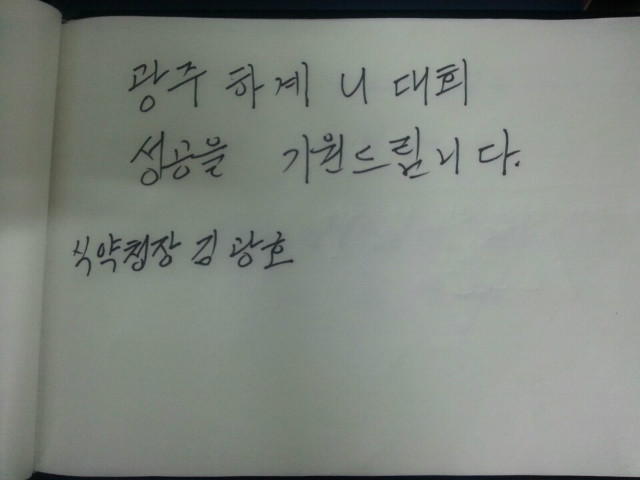 광주 하계 U 대회
성공을 기원드립니다.
식약청장 김광호